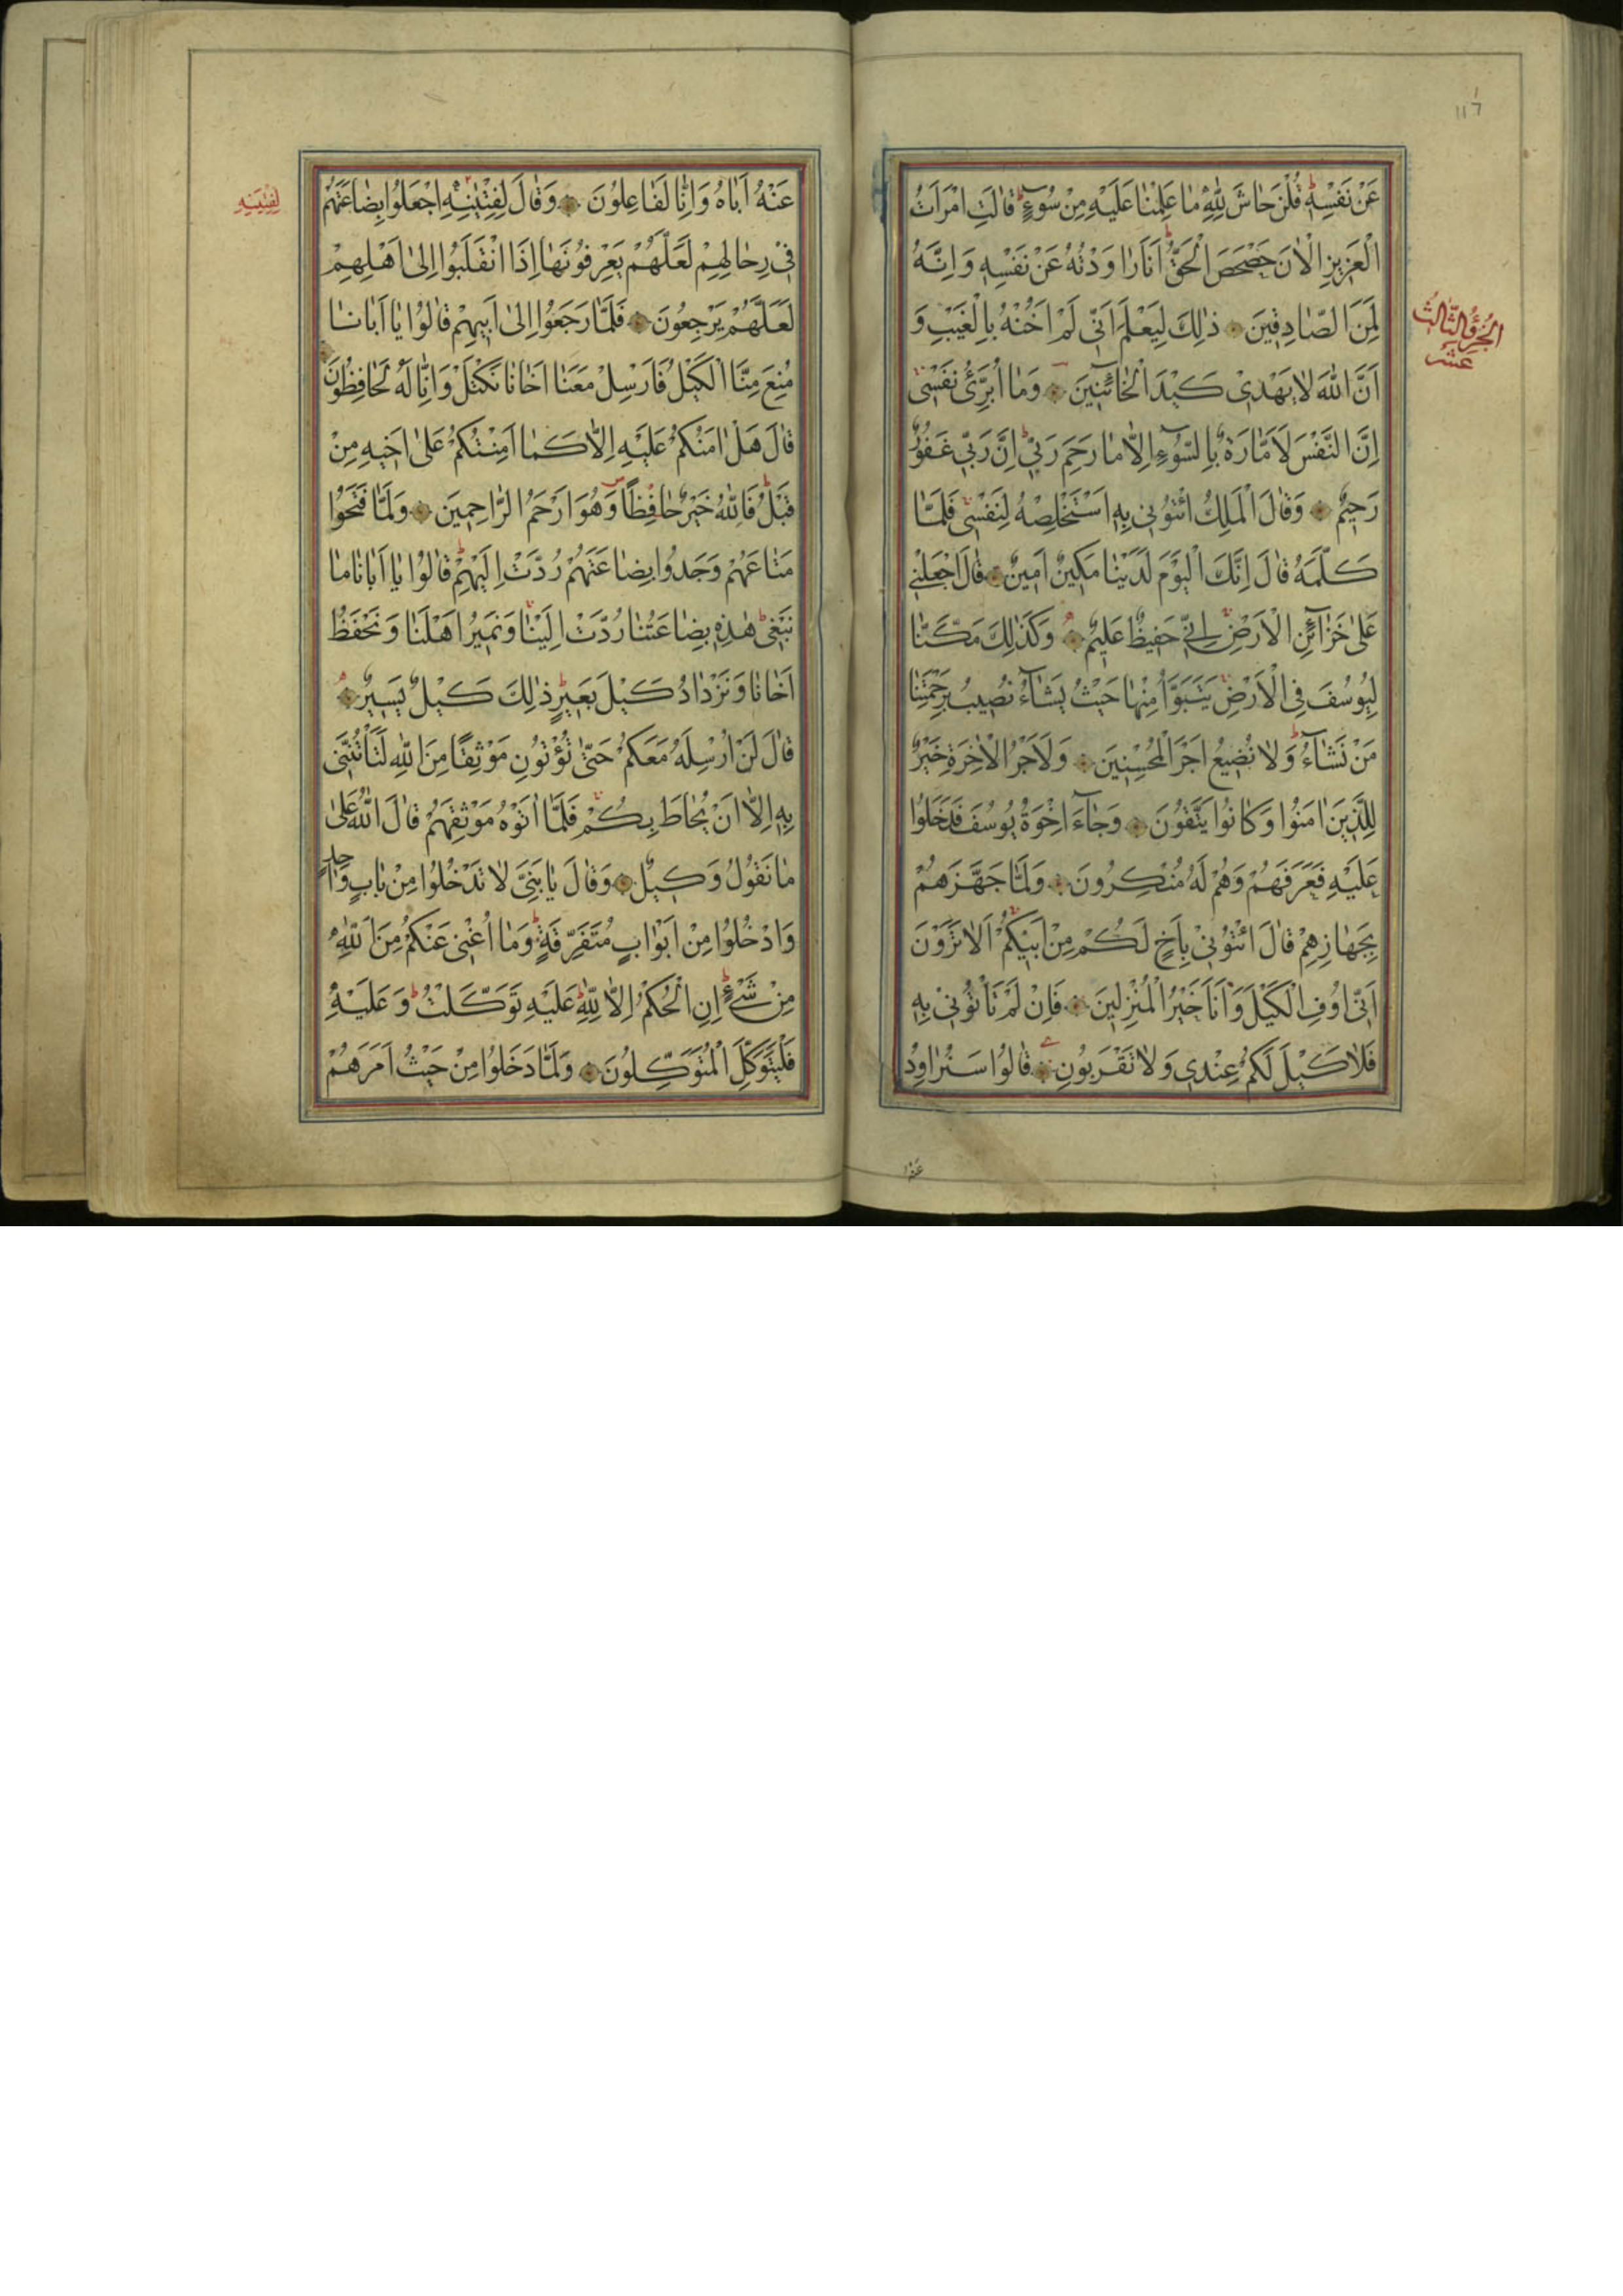 ١١٦
عَنْ نَفْسِهِ قُلْنَ حَاشَ لِلّٰهِ مَا عَلِمْنَا عَلَيْهِ مِنْ سُوءٍ قَالَتِ امْرَاَتُ
الْعَزِيزِ الْاٰنَ حَصْحَصَ الْحَقُّ اَنَا رَاوَدْتُهُ عَنْ نَفْسِهِ وَاِنَّهُ
لَمِنَ الصَّادِقِينَ ذٰلِكَ لِيَعْلَمَ اَنِّي لَمْ اَخُنْهُ بِالْغَيْبِ وَ
اَنَّ اللّٰهَ لَا يَهْدِي كَيْدَ الْخَآئِنِينَ وَمَا اُبَرِّئُ نَفْسِي
اِنَّ النَّفْسَ لَاَمَّارَةٌ بِالسُّوءِ اِلَّا مَا رَحِمَ رَبِّي اِنَّ رَبِّي غَفُورٌ
رَحِيمٌ وَقَالَ الْمَلِكُ ائْتُونِي بِهِ اَسْتَخْلِصْهُ لِنَفْسِي فَلَمَّا
كَلَّمَهُ قَالَ اِنَّكَ الْيَوْمَ لَدَيْنَا مَكِينٌ اَمِينٌ قَالَ اجْعَلْنِي
عَلٰى خَزَآئِنِ الْاَرْضِ اِنِّي حَفِيظٌ عَلِيمٌ وَكَذٰلِكَ مَكَّنَّا
لِيُوسُفَ فِي الْاَرْضِ يَتَبَوَّاُ مِنْهَا حَيْثُ يَشَآءُ نُصِيبُ بِرَحْمَتِنَا
مَنْ نَشَآءُ وَلَا نُضِيعُ اَجْرَ الْمُحْسِنِينَ وَلَاَجْرُ الْاٰخِرَةِ خَيْرٌ
لِلَّذِينَ اٰمَنُوا وَكَانُوا يَتَّقُونَ وَجَآءَ اِخْوَةُ يُوسُفَ فَدَخَلُوا
عَلَيْهِ فَعَرَفَهُمْ وَهُمْ لَهُ مُنْكِرُونَ وَلَمَّا جَهَّزَهُمْ
بِجَهَازِهِمْ قَالَ ائْتُونِي بِاَخٍ لَكُمْ مِنْ اَبِيكُمْ اَلَا تَرَوْنَ
اَنِّي اُوفِ الْكَيْلَ وَاَنَا خَيْرُ الْمُنْزِلِينَ فَاِنْ لَمْ تَاْتُونِي بِهِ
فَلَا كَيْلَ لَكُمْ عِنْدِي وَلَا تَقْرَبُونِ قَالُوا سَنُرَاوِدُ
الجُزْؤُ الثَّالِثُ
عَشَر
عَنْهُ
عَنْهُ اَبَاهُ وَاِنَّا لَفَاعِلُونَ وَقَالَ لِفِتْيٰنِهِ اجْعَلُوا بِضَاعَتَهُمْ
فِي رِحَالِهِمْ لَعَلَّهُمْ يَعْرِفُونَهَا اِذَا انْقَلَبُوا اِلٰى اَهْلِهِمْ
لَعَلَّهُمْ يَرْجِعُونَ فَلَمَّا رَجَعُوا اِلٰى اَبِيهِمْ قَالُوا يَا اَبَانَا
مُنِعَ مِنَّا الْكَيْلُ فَاَرْسِلْ مَعَنَا اَخَانَا نَكْتَلْ وَاِنَّا لَهُ لَحَافِظُونَ
قَالَ هَلْ اٰمَنُكُمْ عَلَيْهِ اِلَّا كَمَا اَمِنْتُكُمْ عَلٰى اَخِيهِ مِنْ
قَبْلُ فَاللّٰهُ خَيْرٌ حَافِظًا وَهُوَ اَرْحَمُ الرَّاحِمِينَ وَلَمَّا فَتَحُوا
مَتَاعَهُمْ وَجَدُوا بِضَاعَتَهُمْ رُدَّتْ اِلَيْهِمْ قَالُوا يَا اَبَانَا مَا
نَبْغِي هٰذِهِ بِضَاعَتُنَا رُدَّتْ اِلَيْنَا وَنَمِيرُ اَهْلَنَا وَنَحْفَظُ
اَخَانَا وَنَزْدَادُ كَيْلَ بَعِيرٍ ذٰلِكَ كَيْلٌ يَسِيرٌ
قَالَ لَنْ اُرْسِلَهُ مَعَكُمْ حَتّٰى تُؤْتُونِ مَوْثِقًا مِنَ اللّٰهِ لَتَاْتُنَّنِي
بِهِ اِلَّا اَنْ يُحَاطَ بِكُمْ فَلَمَّا اٰتَوْهُ مَوْثِقَهُمْ قَالَ اللّٰهُ عَلٰى
مَا نَقُولُ وَكِيلٌ وَقَالَ يَا بَنِيَّ لَا تَدْخُلُوا مِنْ بَابٍ وَاحِدٍ
وَادْخُلُوا مِنْ اَبْوَابٍ مُتَفَرِّقَةٍ وَمَا اُغْنِي عَنْكُمْ مِنَ اللّٰهِ
مِنْ شَيْءٍ اِنِ الْحُكْمُ اِلَّا لِلّٰهِ عَلَيْهِ تَوَكَّلْتُ وَعَلَيْهِ
فَلْيَتَوَكَّلِ الْمُتَوَكِّلُونَ وَلَمَّا دَخَلُوا مِنْ حَيْثُ اَمَرَهُمْ
لِفِتْيَتِهِ